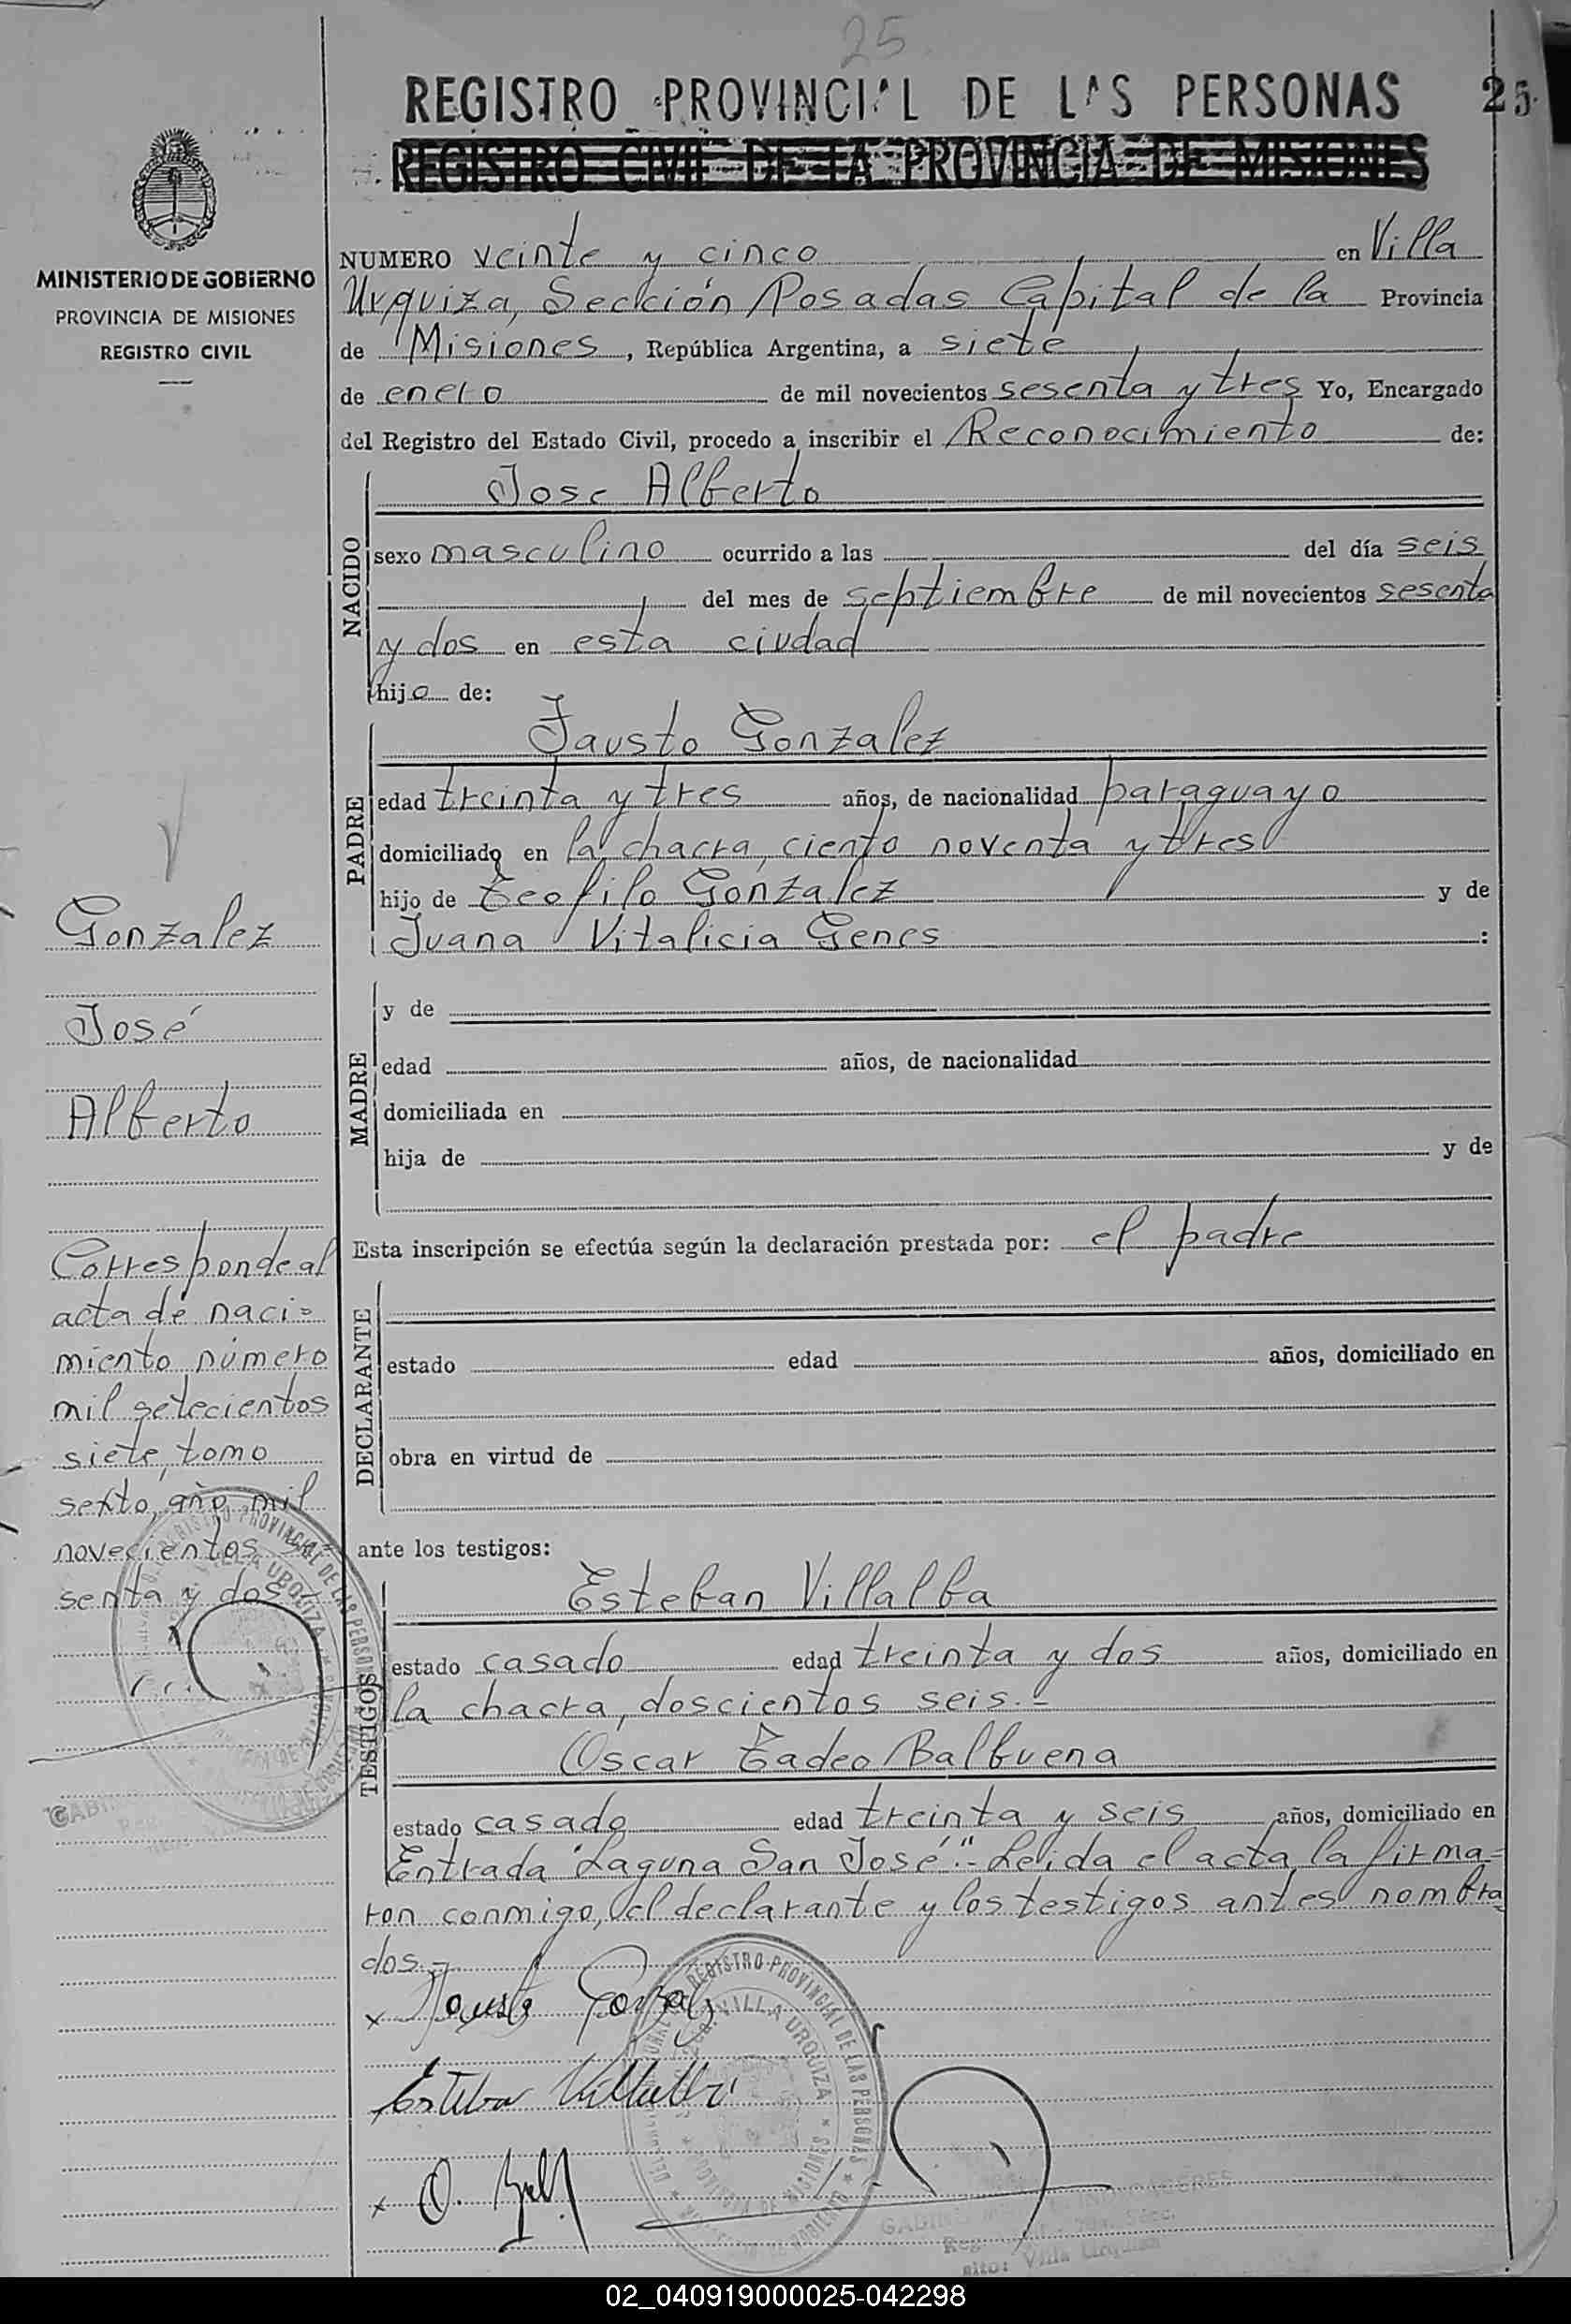 25
REGISTRO PROVINCIAL DE LAS PERSONAS
25
REGISTRO CIVIL DE LA PROVINCIA DE MISIONES
MINISTERIO DE GOBIERNO
PROVINCIA DE MISIONES
REGISTRO CIVIL
NUMERO veinte y cinco en Villa
Urquiza, Sección Posadas Capital de la Provincia
de Misiones, República Argentina, a siete
de enero de mil novecientos sesenta y tres Yo, Encargado
del Registro del Estado Civil, procedo a inscribir el Reconocimiento de:
NACIDO
Jose Alberto
sexo masculino ocurrido a las del día seis
del mes de septiembre de mil novecientos sesenta
y dos en esta ciudad
hijo de:
PADRE
Fausto Gonzalez
edad treinta y tres años, de nacionalidad paraguayo
domiciliado en la chacra, ciento noventa y tres
hijo de Teofilo Gonzalez y de
Juana Vitalicia Genes :
MADRE
y de
edad años, de nacionalidad
domiciliada en
hija de y de
Esta inscripción se efectúa según la declaración prestada por: el padre
DECLARANTE
estado edad años, domiciliado en
obra en virtud de
ante los testigos:
TESTIGOS
Esteban Villalba
estado casado edad treinta y dos años, domiciliado en
la chacra, doscientos seis.-
Oscar Tadeo Balbuena
estado casado edad treinta y seis años, domiciliado en
Entrada "Laguna San José".- Leida el acta, la firma=
ron conmigo, el declarante y los testigos antes nombra
dos.-
Gonzalez
José
Alberto
Corresponde al
acta de naci=
miento número
mil setecientos
siete, tomo
sexto, año mil
novecientos se
senta y dos
x Fausto Gonzalez
Esteban Villalba
x O. Balb
REGISTRO PROVINCIAL DE LAS PERSONAS
VILLA URQUIZA
PROVINCIA DE MISIONES
02_040919000025-042298